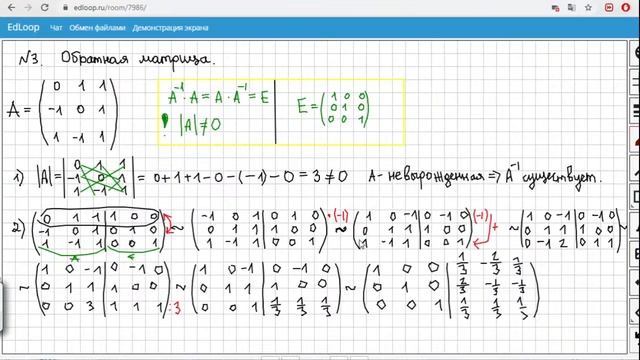 edloop.ru/room/7986/
EdLoop Чат Обмен файлами Демонстрация экрана
№3. Обратная матрица.
A = ( 0 1 1 ; -1 0 1 ; 1 -1 1 )
A⁻¹·A = A·A⁻¹ = E
! |A| ≠ 0
E = ( 1 0 0 ; 0 1 0 ; 0 0 1 )
1) |A| = | 0 1 1 ; -1 0 1 ; 1 -1 1 | = 0+1+1-0-(-1)-0 = 3 ≠ 0 A - невырожденная ⇒ A⁻¹ существует.
2) ( 0 1 1 | 1 0 0 ; -1 0 1 | 0 1 0 ; 1 -1 1 | 0 0 1 ) ~ ( -1 0 1 | 0 1 0 ; 0 1 1 | 1 0 0 ; 1 -1 1 | 0 0 1 ) ·(-1) ~ ( 1 0 -1 | 0 -1 0 ; 0 1 1 | 1 0 0 ; 1 -1 1 | 0 0 1 ) (-1) + ~ ( 1 0 -1 | 0 -1 0 ; 0 1 1 | 1 0 0 ; 0 -1 2 | 0 1 1 ) ~
A E
~ ( 1 0 -1 | 0 -1 0 ; 0 1 1 | 1 0 0 ; 0 0 3 | 1 1 1 ) :3 ~ ( 1 0 -1 | 0 -1 0 ; 0 1 1 | 1 0 0 ; 0 0 1 | 1/3 1/3 1/3 ) ~ ( 1 0 0 | 1/3 -2/3 1/3 ; 0 1 0 | 2/3 -1/3 -1/3 ; 0 0 1 | 1/3 1/3 1/3 )